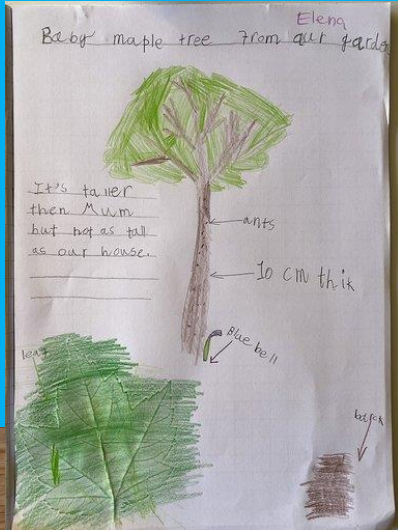 Elena
Baby maple tree from our garde
It's taller
then Mum
but not as tall
as our house.
ants
10 cm thik
Blue bell
leaf
barck